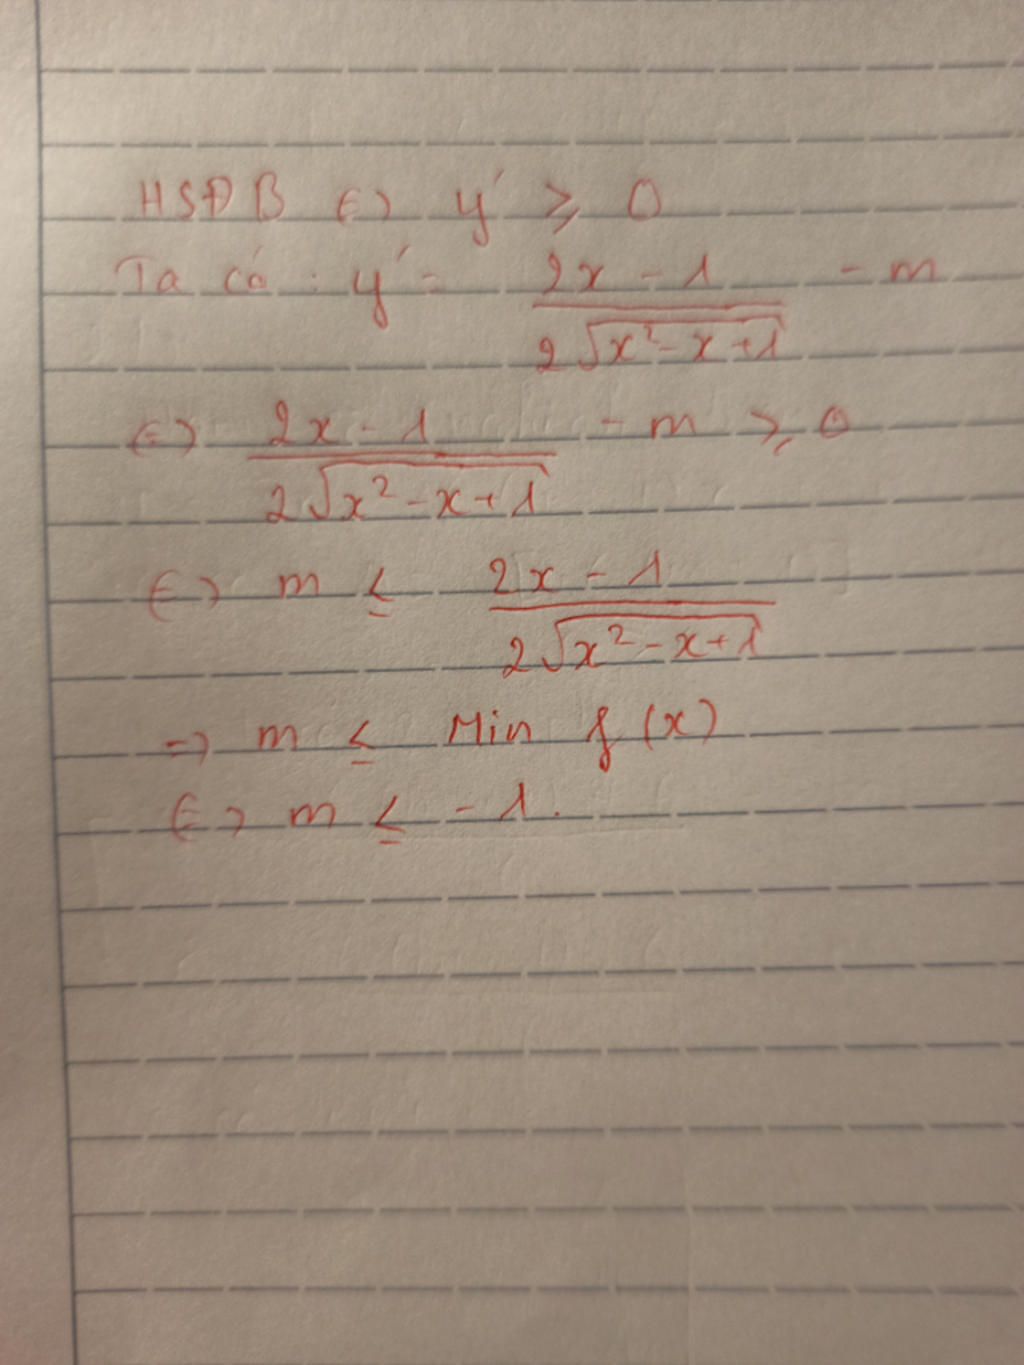 HSĐB (=) y' ≥ 0
Ta có : y' = (2x - 1)/(2√(x² - x + 1)) - m
(=) (2x - 1)/(2√(x² - x + 1)) - m ≥ 0
(=) m ≤ (2x - 1)/(2√(x² - x + 1))
=) m ≤ Min f(x)
(=) m ≤ -1.